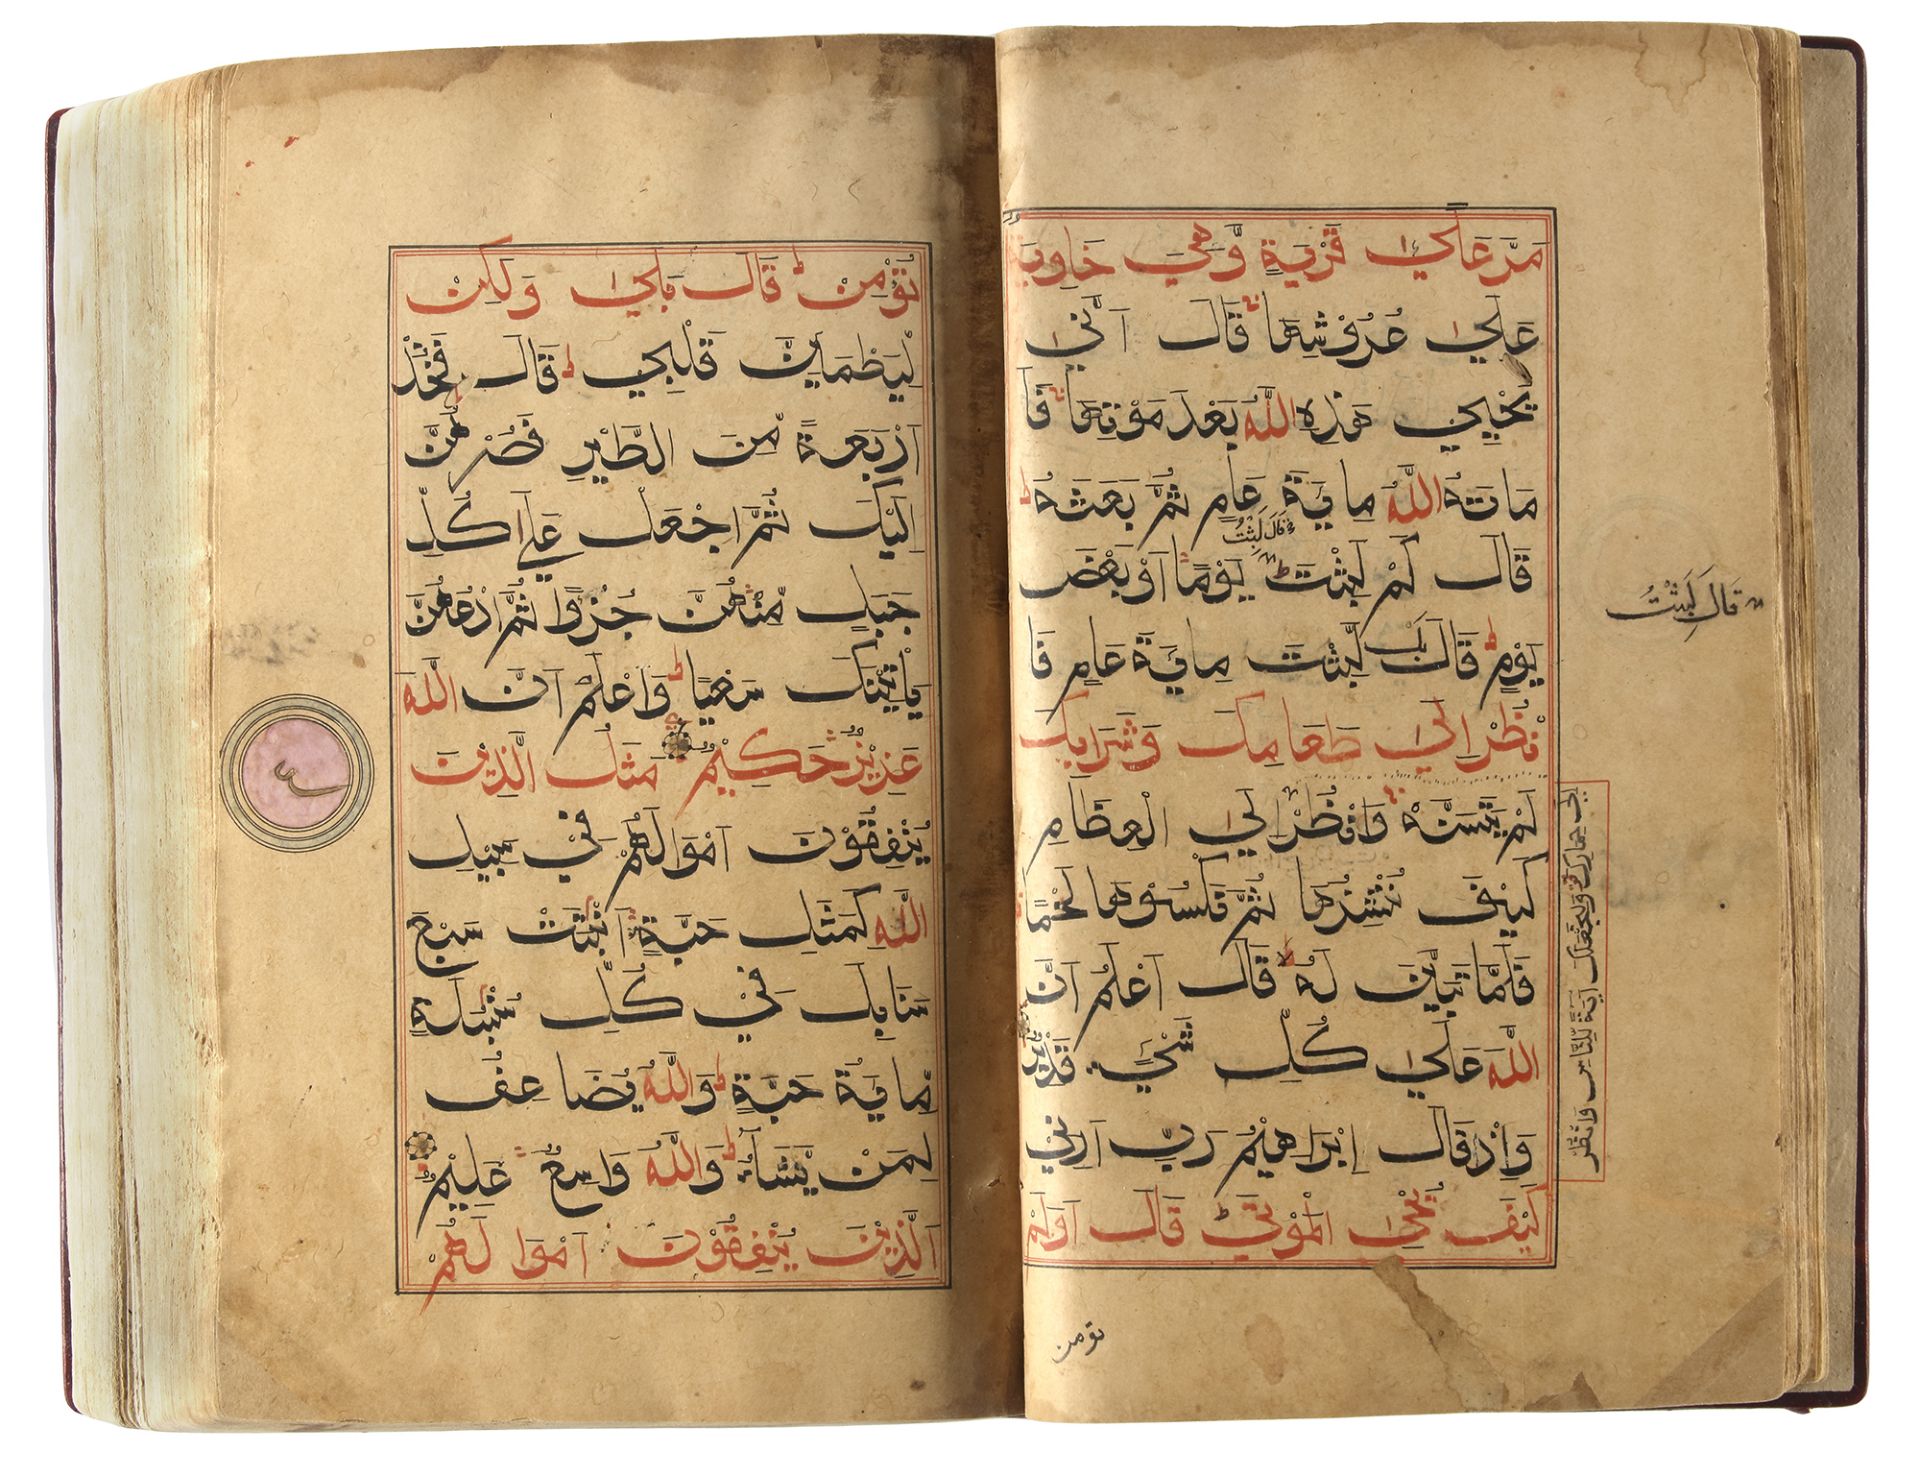 مَرَّ عَلٰى قَرْيَةٍ وَّهِيَ خَاوِيَةٌ
عَلٰى عُرُوْشِهَا قَالَ اَنّٰى
يُحْيِي هٰذِهِ اللّٰهُ بَعْدَ مَوْتِهَا فَاَ
مَاتَهُ اللّٰهُ مِايَةَ عَامٍ ثُمَّ بَعَثَهُ ط
قَالَ لَبِثْتُ
قَالَ كَمْ لَبِثْتَ ط يَوْمًا اَوْ بَعْضَ
قَالَ لَبِثْتُ
يَوْمٍ ط قَالَ بَلْ لَّبِثْتَ مِايَةَ عَامٍ فَا
نْظُرْ اِلٰى طَعَامِكَ وَشَرَابِكَ
لَمْ يَتَسَنَّهْ وَانْظُرْ اِلٰى الْعِظَامِ
اِلٰى حِمَارِكَ وَلِنَجْعَلَكَ اٰيَةً لِّلنَّاسِ وَانْظُرْ
كَيْفَ نُنْشِزُهَا ثُمَّ نَكْسُوْهَا لَحْمًا
فَلَمَّا تَبَيَّنَ لَهُ لا قَالَ اَعْلَمُ اَنَّ
اللّٰهَ عَلٰى كُلِّ شَيْءٍ قَدِيْرٌ
وَاِذْ قَالَ اِبْرَاهِيْمُ رَبِّ اَرِنِيْ
كَيْفَ تُحْيِ الْمَوْتٰى ط قَالَ اَوَلَمْ
تومن
تُؤْمِنْ ط قَالَ بَلٰى وَلٰكِنْ
لِّيَطْمَئِنَّ قَلْبِيْ ط قَالَ فَخُذْ
اَرْبَعَةً مِّنَ الطَّيْرِ فَصُرْهُنَّ
اِلَيْكَ ثُمَّ اجْعَلْ عَلٰى كُلِّ
جَبَلٍ مِّنْهُنَّ جُزْوًا ثُمَّ ادْعُهُنَّ
يَاْتِيْنَكَ سَعْيًا ط وَاعْلَمْ اَنَّ اللّٰهَ
عَزِيْزٌ حَكِيْمٌ مَثَلُ الَّذِيْنَ
يُنْفِقُوْنَ اَمْوَالَهُمْ فِيْ سَبِيْلِ
اللّٰهِ كَمَثَلِ حَبَّةٍ اَنْبَتَتْ سَبْعَ
سَنَابِلَ فِيْ كُلِّ سُنْبُلَةٍ
مِّايَةُ حَبَّةٍ ط وَاللّٰهُ يُضَاعِفُ
لِمَنْ يَّشَاءُ ط وَاللّٰهُ وَاسِعٌ عَلِيْمٌ
اَلَّذِيْنَ يُنْفِقُوْنَ اَمْوَالَهُمْ